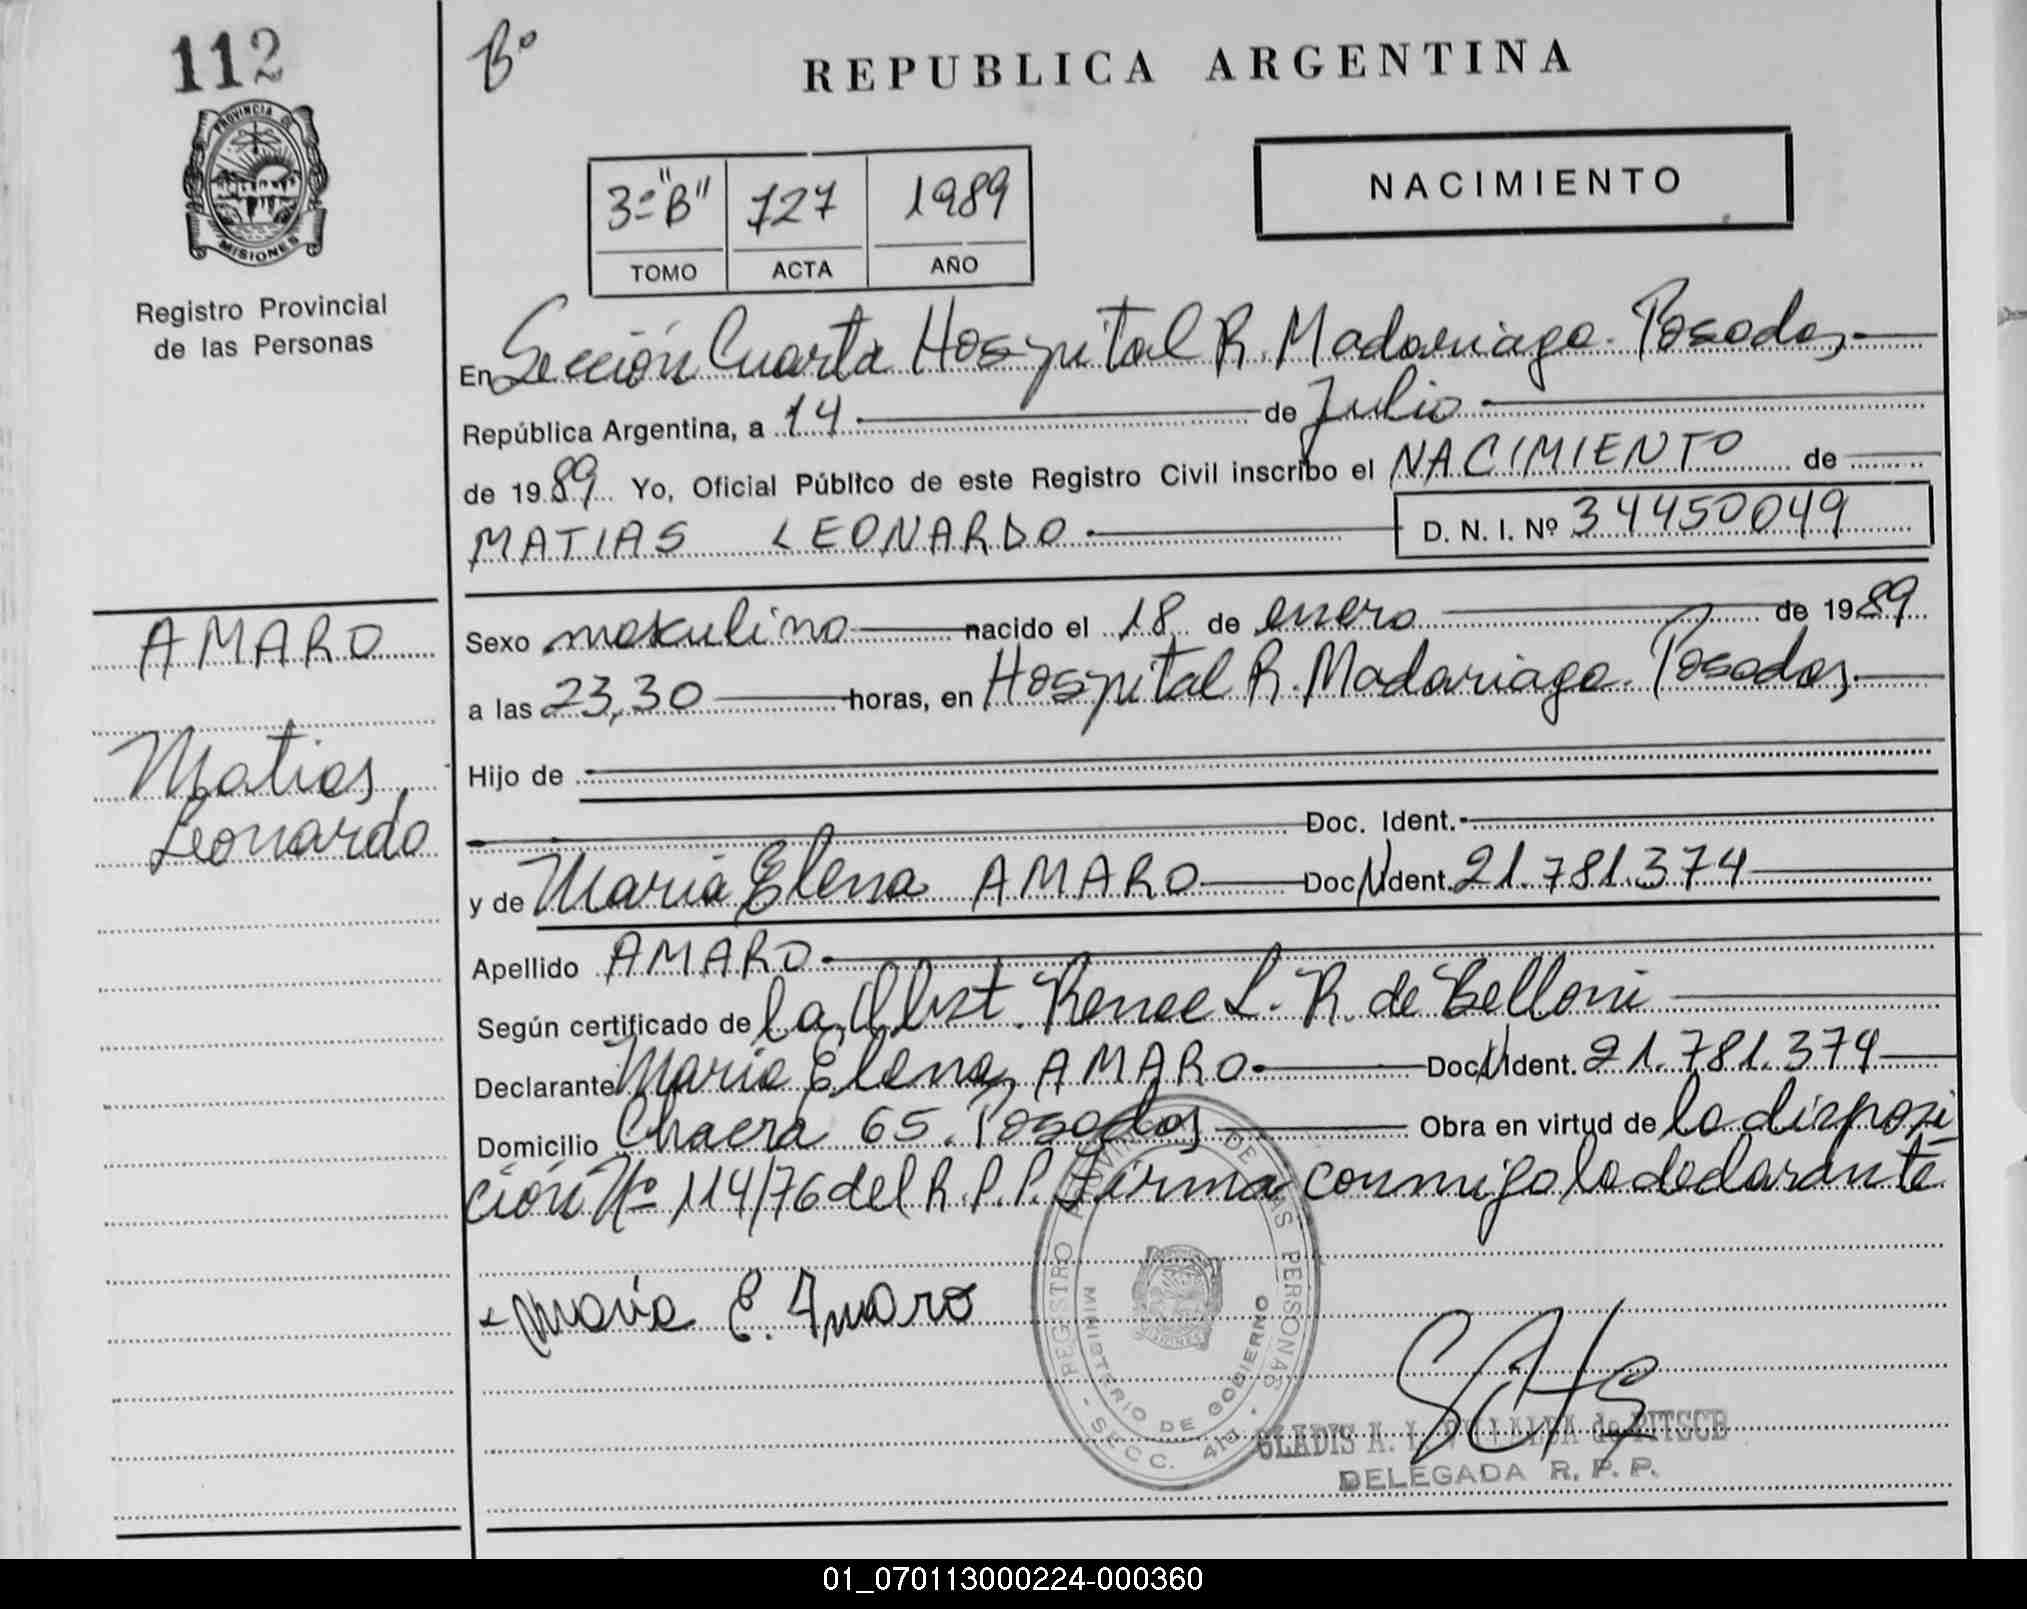 112
Bº
REPUBLICA ARGENTINA
PROVINCIA DE
MISIONES
Registro Provincial
de las Personas
3º "B" 727 1989
TOMO ACTA AÑO
NACIMIENTO
En Sección Cuarta Hospital R. Madariaga. Posadas
República Argentina, a 14 de Julio
de 1989 Yo, Oficial Público de este Registro Civil inscribo el NACIMIENTO de
MATIAS LEONARDO D. N. I. Nº 34450049
AMARO
Matias
Leonardo
Sexo masculino nacido el 18 de enero de 1989
a las 23,30 horas, en Hospital R. Madariaga. Posadas
Hijo de
Doc. Ident.
y de Maria Elena AMARO Doc. N Ident. 21.781.374
Apellido AMARO
Según certificado de la Obst. Renee L. R. de Belloni
Declarante Maria Elena AMARO Doc. N Ident. 21.781.374
Domicilio Chacra 65. Posadas Obra en virtud de la disposi
ción Nº 114/76 del R.P.P. Firma conmigo la declarante
Maria E. Amaro
REGISTRO PROVINCIAL DE LAS PERSONAS
MINISTERIO DE GOBIERNO
- SECC. 4ta. -
GLADIS A. I. VILLALBA de PITSCH
DELEGADA R. P. P.
01_070113000224-000360